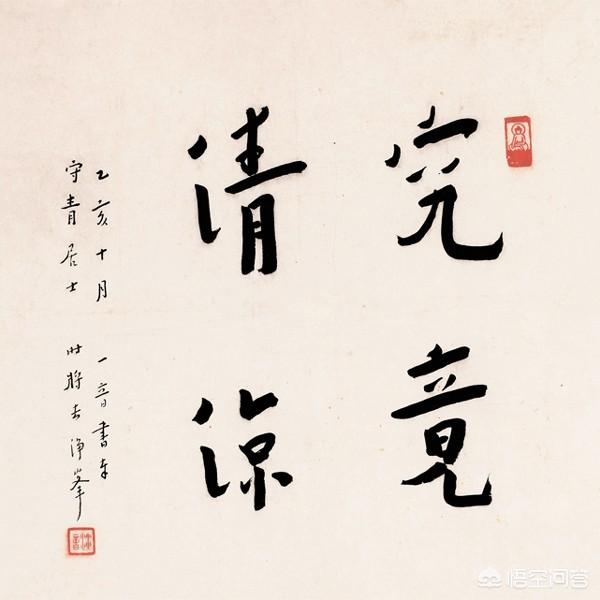 究竟
清涼
乙亥十月 一音書奉
守青居士 时將去淨峯
悟空问答